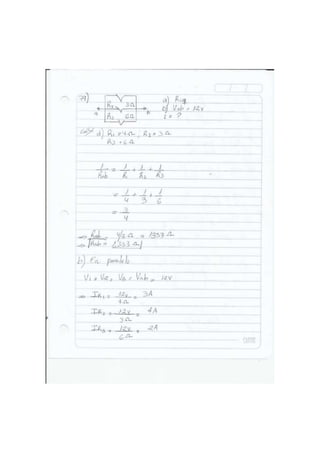 79)
R2 3Ω
a) Req
R3 6Ω
b) Vab = 12V
a
b
i = ?
a) R1 = 4Ω, R2 = 3Ω
R3 = 6Ω
1/Rab = 1/R1 + 1/R2 + 1/R3
= 1/4 + 1/3 + 1/6
= 3/4
⇒ Rab = 4/3 Ω = 1333 Ω
⇒ Rab = 1,333 Ω
b) En paralelo
V1 = V2 = V3 = Vab = 12V
⇒ IR1 = 12V/4Ω = 3A
IR2 = 12V/3Ω = 4A
IR3 = 12V/6Ω = 2A